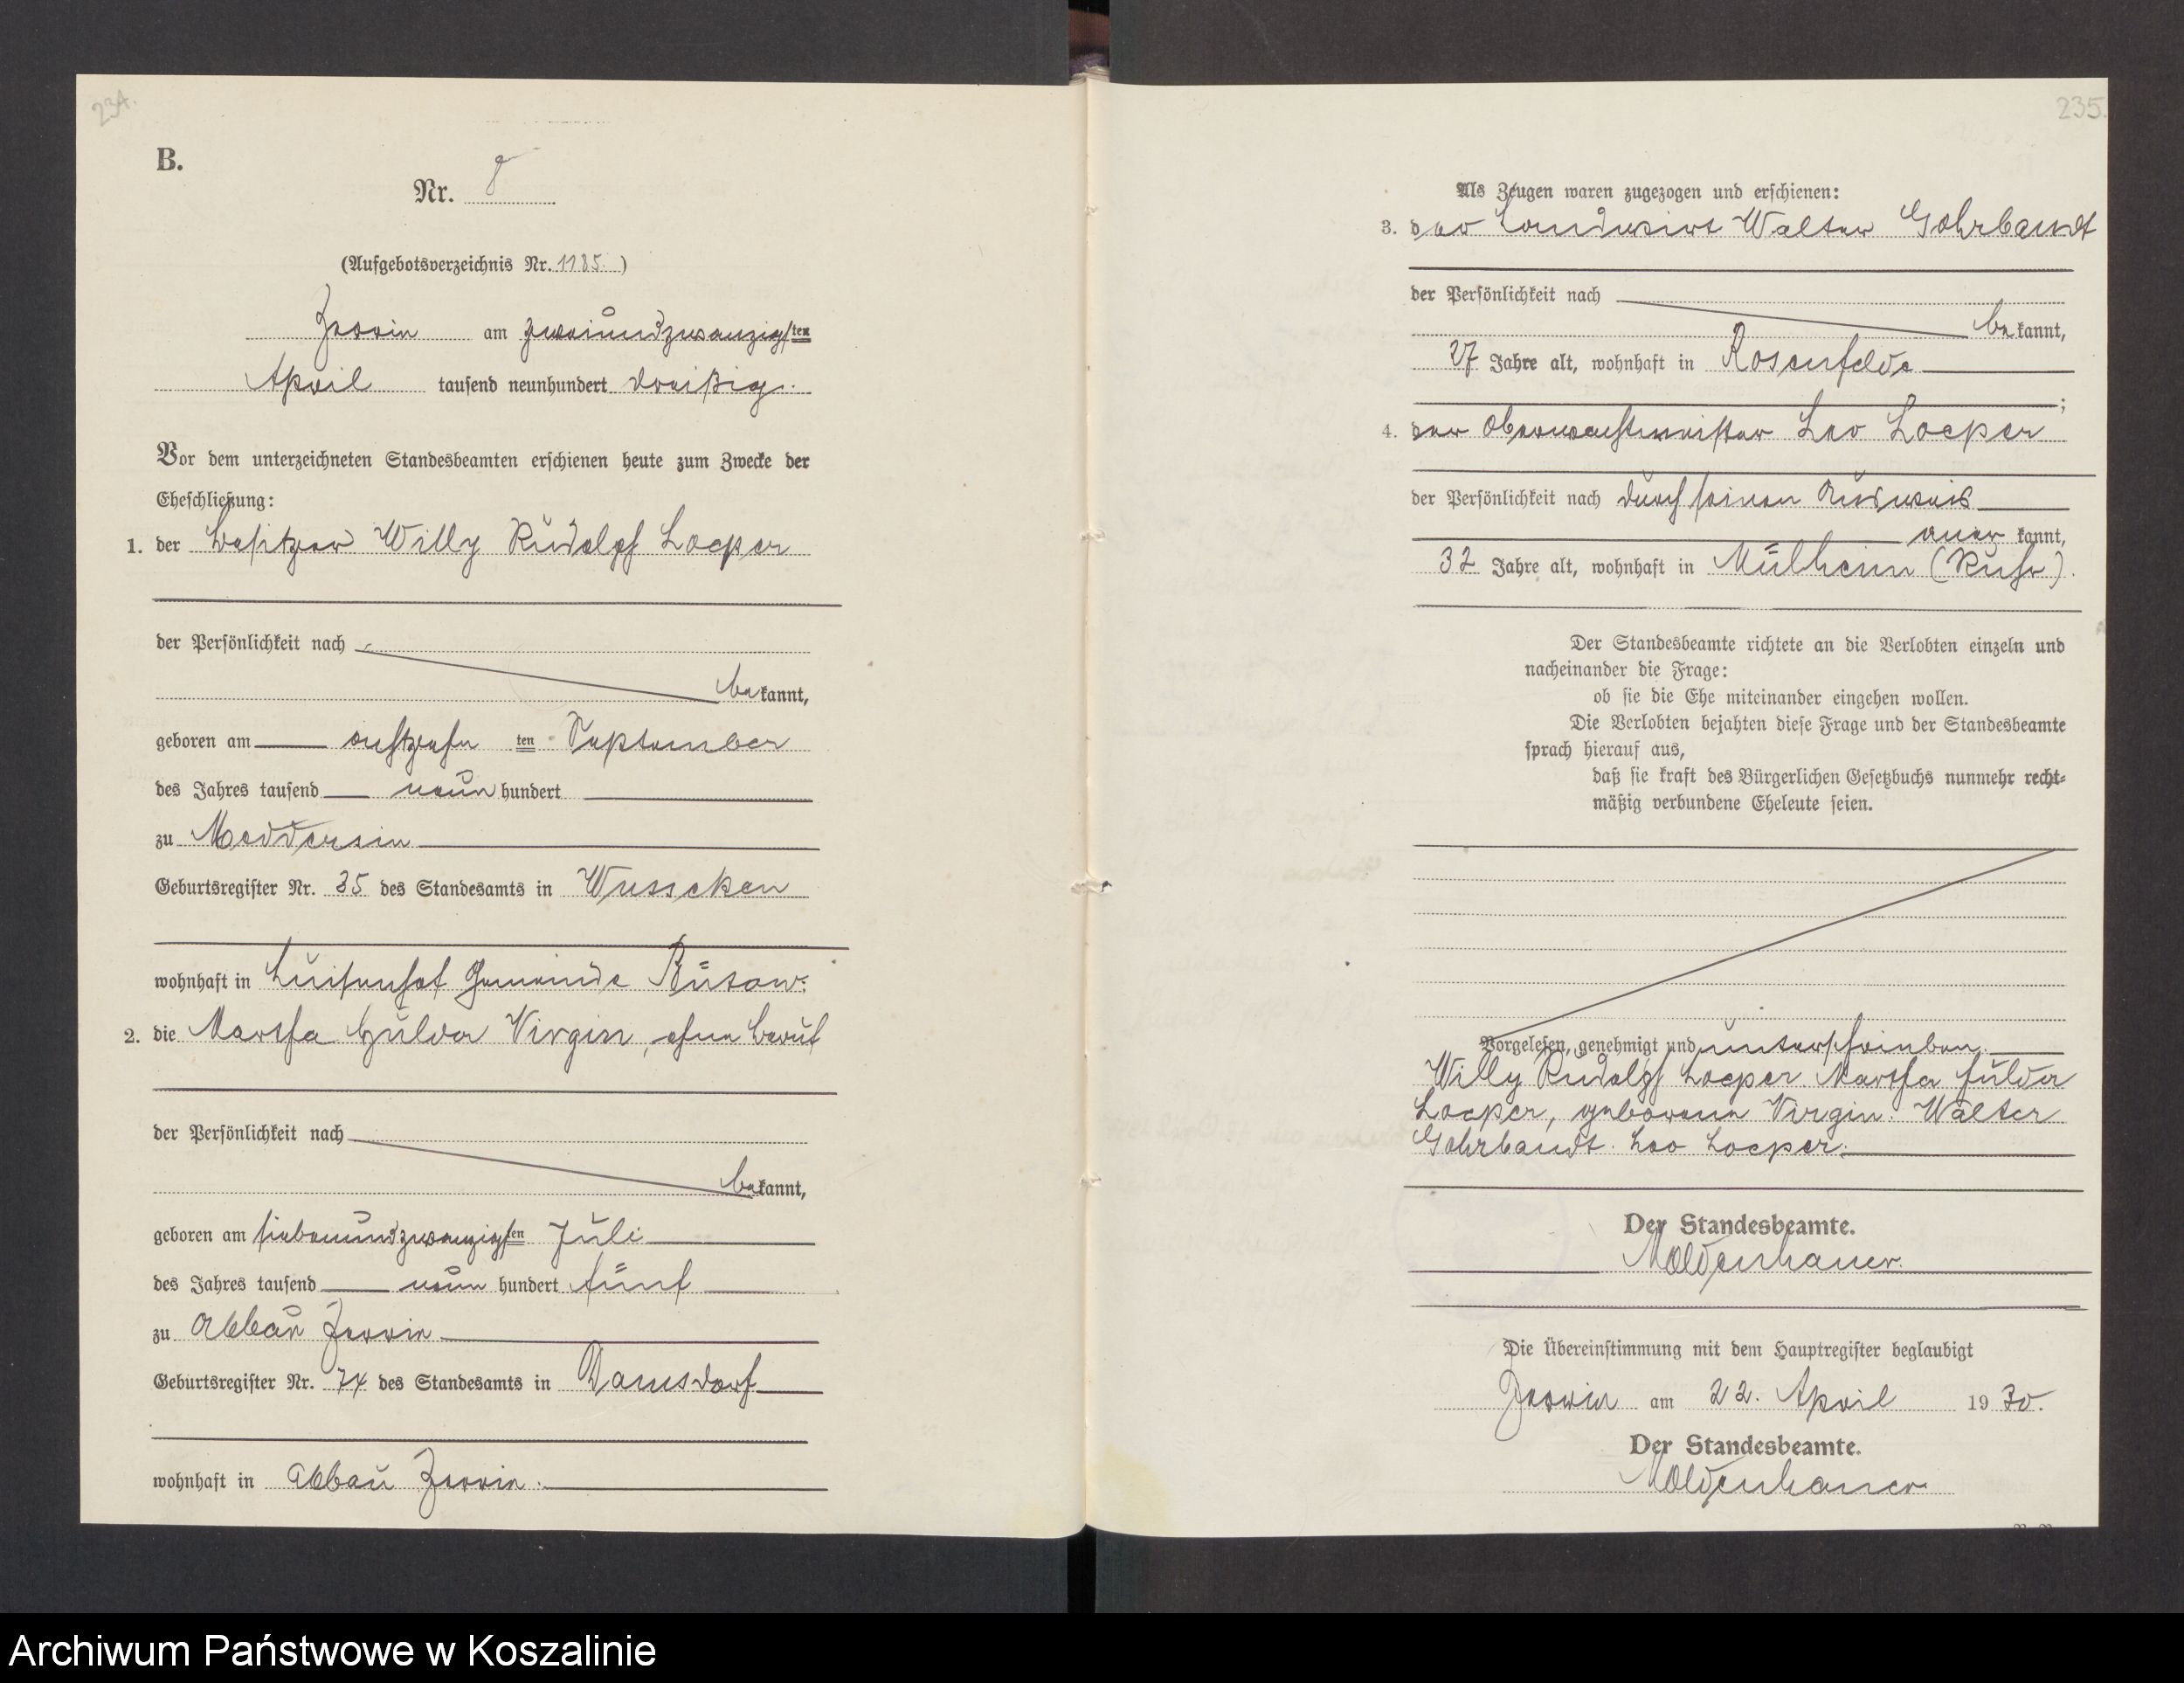 234.
B.
Nr. 8
(Aufgebotsverzeichnis Nr. 1185.)
Jassin am zweiundzwanzigsten
April tausend neunhundert dreißig.
Vor dem unterzeichneten Standesbeamten erschienen heute zum Zwecke der
Eheschließung:
1. der Besitzer Willy Rudolph Loeper
der Persönlichkeit nach
bekannt,
geboren am achtzehnten September
des Jahres tausend neunhundert
zu Moddersin
Geburtsregister Nr. 35 des Standesamts in Wusseken
wohnhaft in Luisenhof Gemeinde Bütow.
2. die Martha Hulda Virgin, ohne Beruf
der Persönlichkeit nach
bekannt,
geboren am siebenundzwanzigsten Juli
des Jahres tausend neunhundert fünf
zu Abbau Jassin
Geburtsregister Nr. 74 des Standesamts in Damsdorf
wohnhaft in Abbau Jassin.
235.
Als Zeugen waren zugezogen und erschienen:
3. der Landwirt Walter Gohrbandt
der Persönlichkeit nach
bekannt,
27 Jahre alt, wohnhaft in Rosenfelde
;
4. der Oberwachtmeister Leo Loeper
der Persönlichkeit nach durch seinen Ausweis
anerkannt,
32 Jahre alt, wohnhaft in Mülheim (Ruhr).
Der Standesbeamte richtete an die Verlobten einzeln und
nacheinander die Frage:
ob sie die Ehe miteinander eingehen wollen.
Die Verlobten bejahten diese Frage und der Standesbeamte
sprach hierauf aus,
daß sie kraft des Bürgerlichen Gesetzbuchs nunmehr recht=
mäßig verbundene Eheleute seien.
Vorgelesen, genehmigt und unterschrieben.
Willy Rudolph Loeper. Martha Hulda
Loeper, geborene Virgin. Walter
Gohrbandt. Leo Loeper.
Der Standesbeamte.
Moldenhauer.
Die Übereinstimmung mit dem Hauptregister beglaubigt
Jassin am 22. April 1930.
Der Standesbeamte.
Moldenhauer
Archiwum Państwowe w Koszalinie